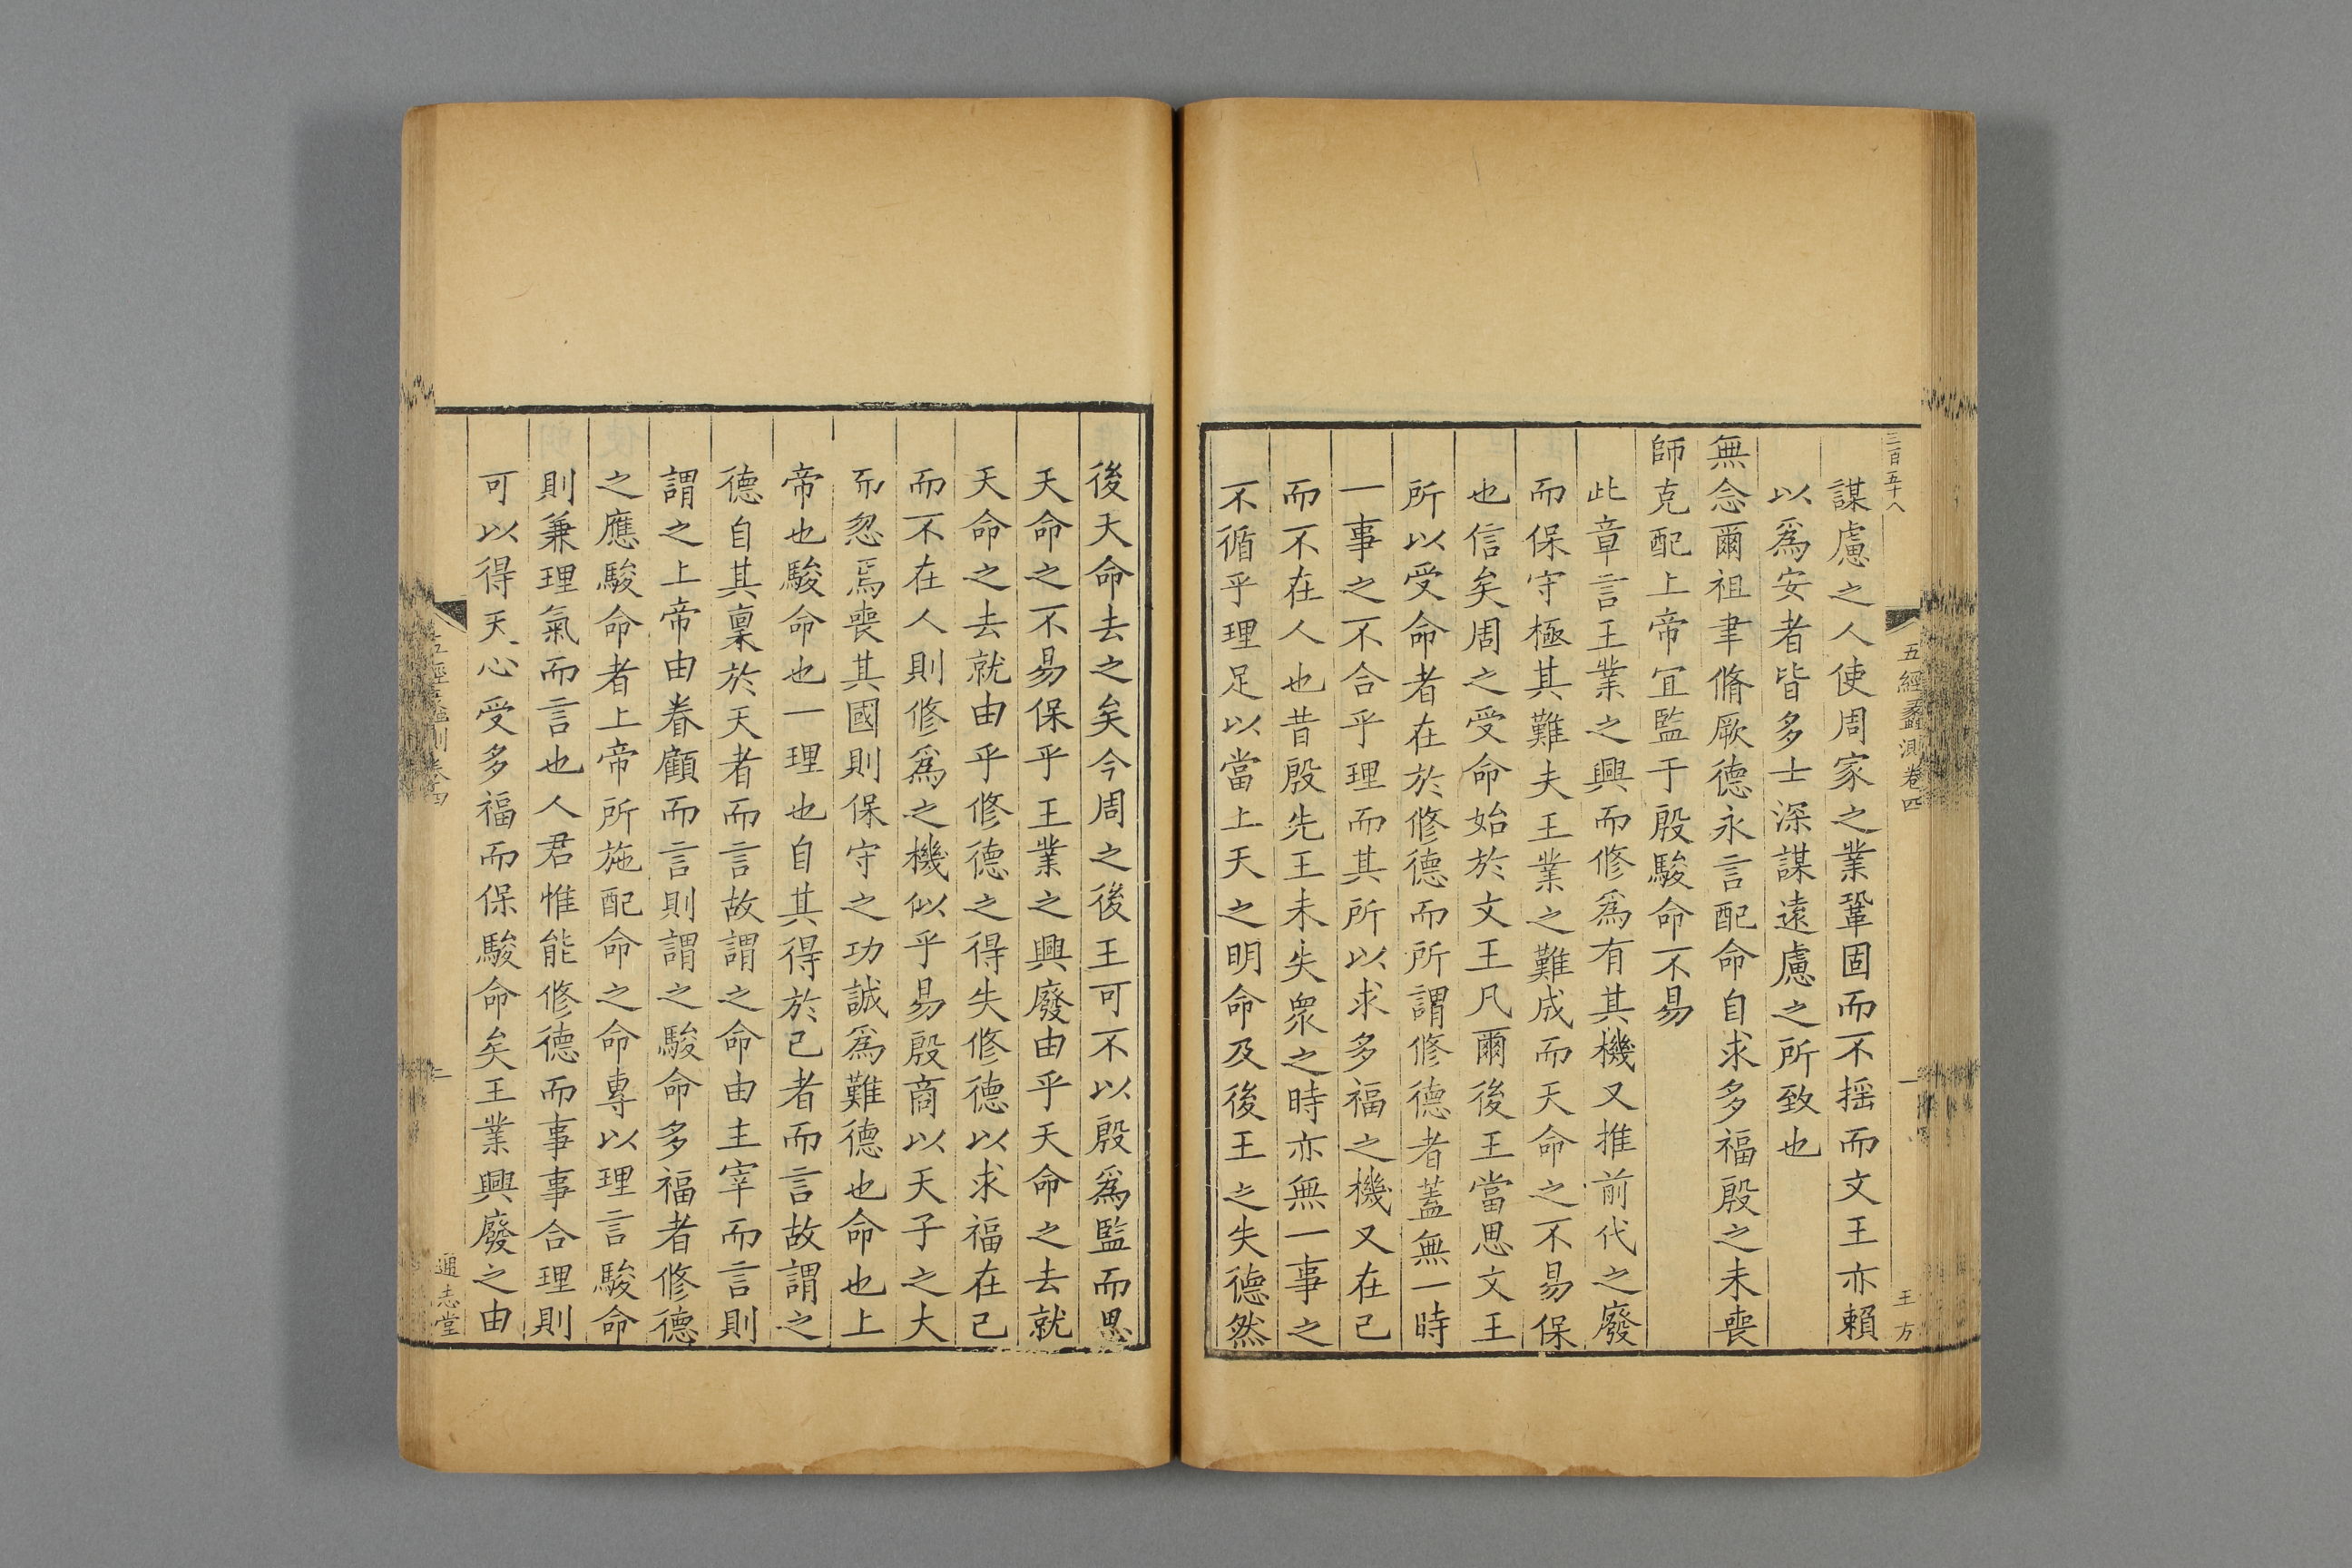 三百五十八
五經蠡測卷四
一
王方
謀慮之人使周家之業鞏固而不揺而文王亦賴
以爲安者皆多士深謀遠慮之所致也
無念爾祖聿脩厥德永言配命自求多福殷之未喪
師克配上帝宜監于殷駿命不易
此章言王業之興而修爲有其機又推前代之廢
而保守極其難夫王業之難成而天命之不易保
也信矣周之受命始於文王凡爾後王當思文王
所以受命者在於修德而所謂修德者蓋無一時
一事之不合乎理而其所以求多福之機又在己
而不在人也昔殷先王未失衆之時亦無一事之
不循乎理足以當上天之明命及後王之失德然
後天命去之矣今周之後王可不以殷爲監而思
天命之不易保乎王業之興廢由乎天命之去就
天命之去就由乎修德之得失修德以求福在己
而不在人則修爲之機似乎易殷商以天子之大
而忽焉喪其國則保守之功誠爲難德也命也上
帝也駿命也一理也自其得於己者而言故謂之
德自其稟於天者而言故謂之命由主宰而言則
謂之上帝由眷顧而言則謂之駿命多福者修德
之應駿命者上帝所施配命之命專以理言駿命
則兼理氣而言也人君惟能修德而事事合理則
可以得天心受多福而保駿命矣王業興廢之由
五經蠡測卷四
二
通志堂